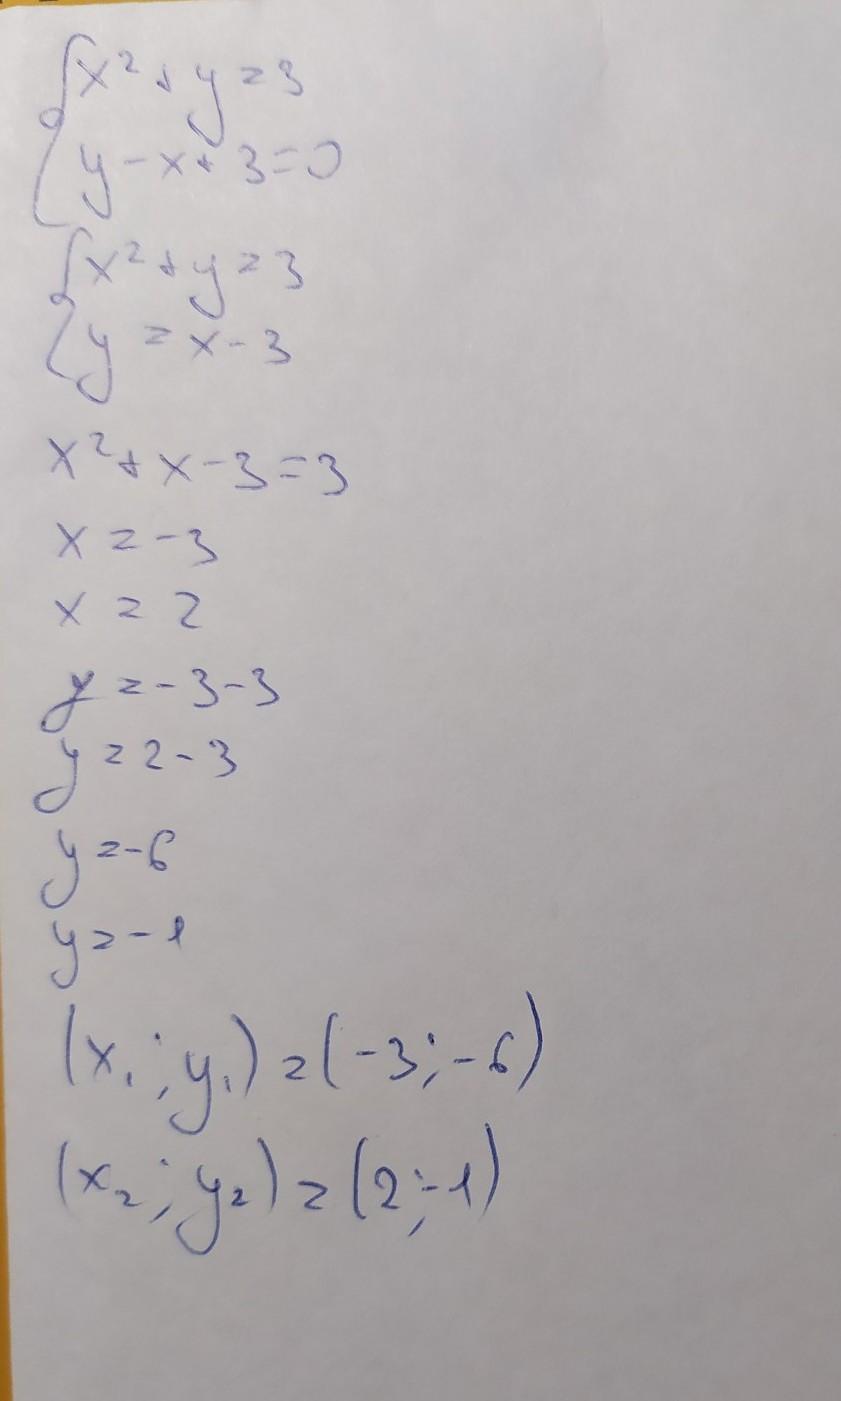 x² + y = 3
y - x + 3 = 0
x² + y = 3
y = x - 3
x² + x - 3 = 3
x = -3
x = 2
y = -3 - 3
y = 2 - 3
y = -6
y = -1
(x₁; y₁) = (-3; -6)
(x₂; y₂) = (2; -1)